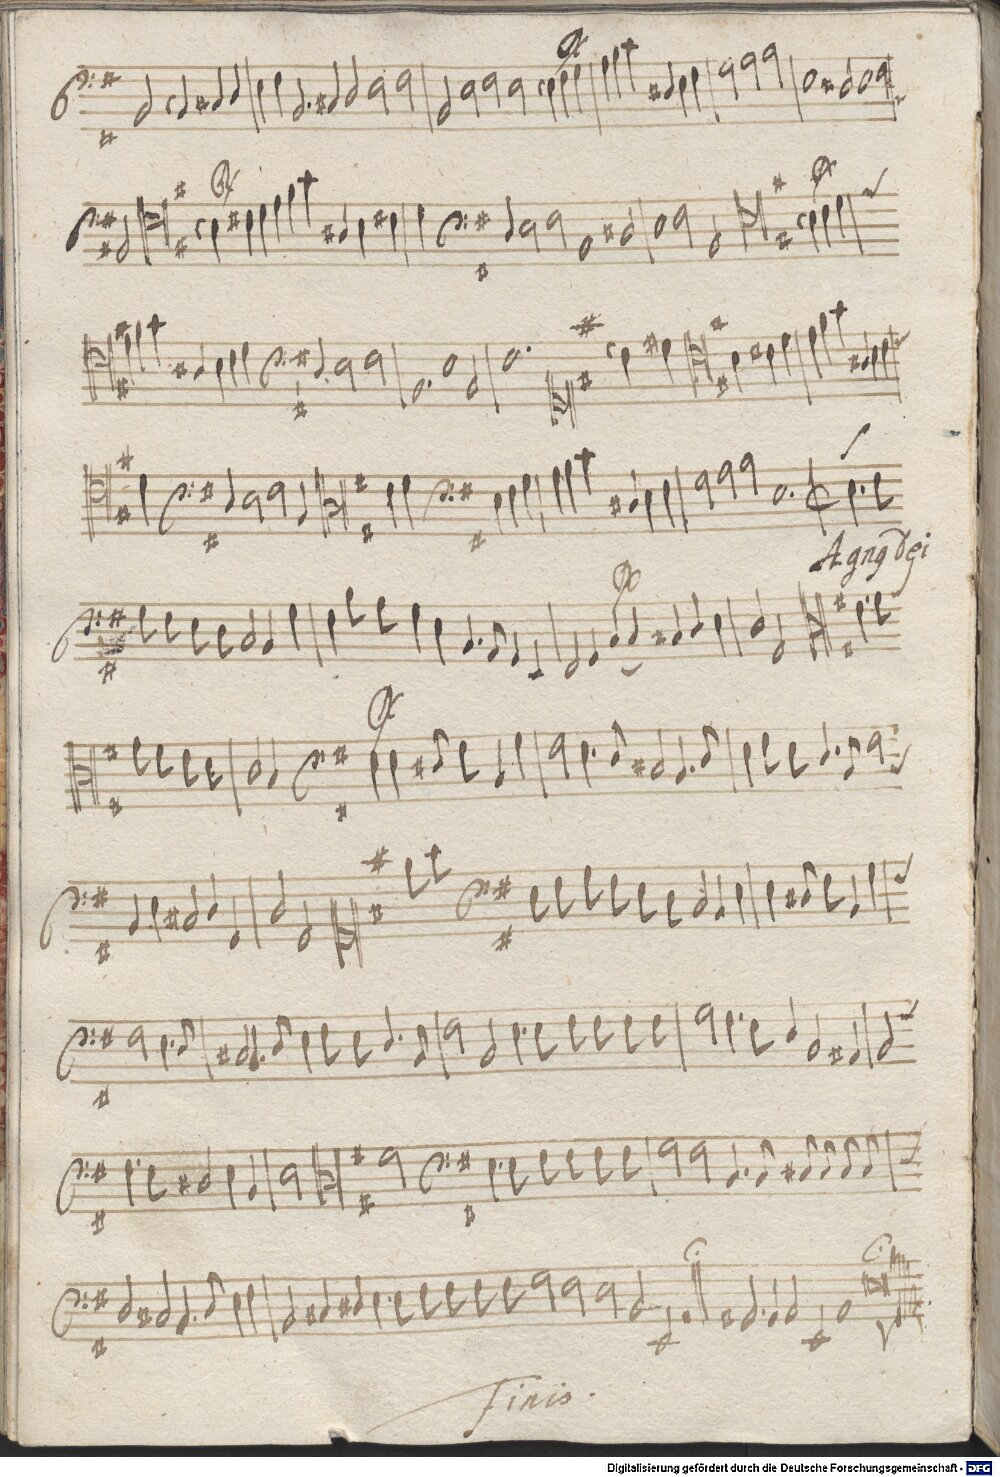 Agnq Dei
Finis.
Digitalisierung gefördert durch die Deutsche Forschungsgemeinschaft - DFG